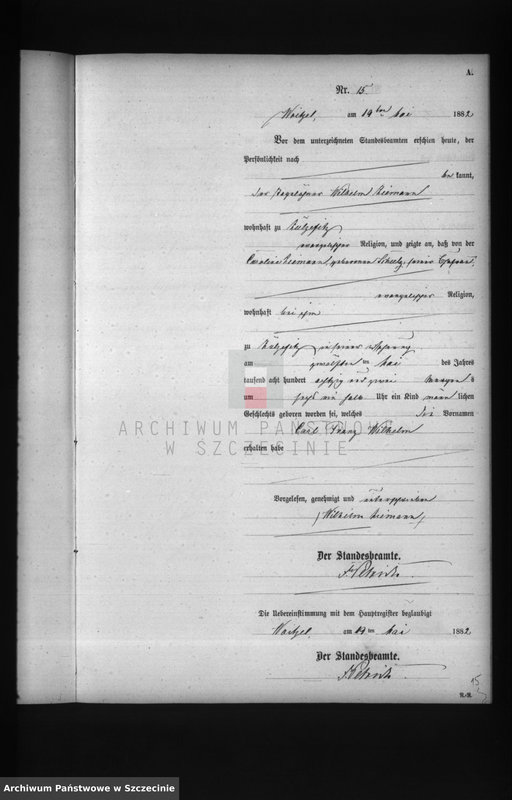 A.
Nr. 15.
Waitzel, am 19ten Mai 1882
Vor dem unterzeichneten Standesbeamten erschien heute, der
Persönlichkeit nach
be kannt,
der Tagelöhner Wilhelm Ziemann
wohnhaft zu
evangelischer Religion, und zeigte an, daß von der
Caroline Ziemann, geborenen Scheel, seiner Ehefrau,
evangelischer Religion,
wohnhaft bei ihm
zu in seiner Wohnung
am zwölften ten Mai des Jahres
tausend acht hundert achtzig und zwei Morgens
um sechs ein halb Uhr ein Kind männlichen
Geschlechts geboren worden sei, welches die Vornamen
Carl Franz Wilhelm
erhalten habe
Vorgelesen, genehmigt und unterschrieben
Wilhelm Ziemann
Der Standesbeamte.
Die Uebereinstimmung mit dem Hauptregister beglaubigt
Waitzel, am 19 ten Mai 1882
Der Standesbeamte.
15
ARCHIWUM PAŃSTWOWE
W SZCZECINIE
Archiwum Państwowe w Szczecinie